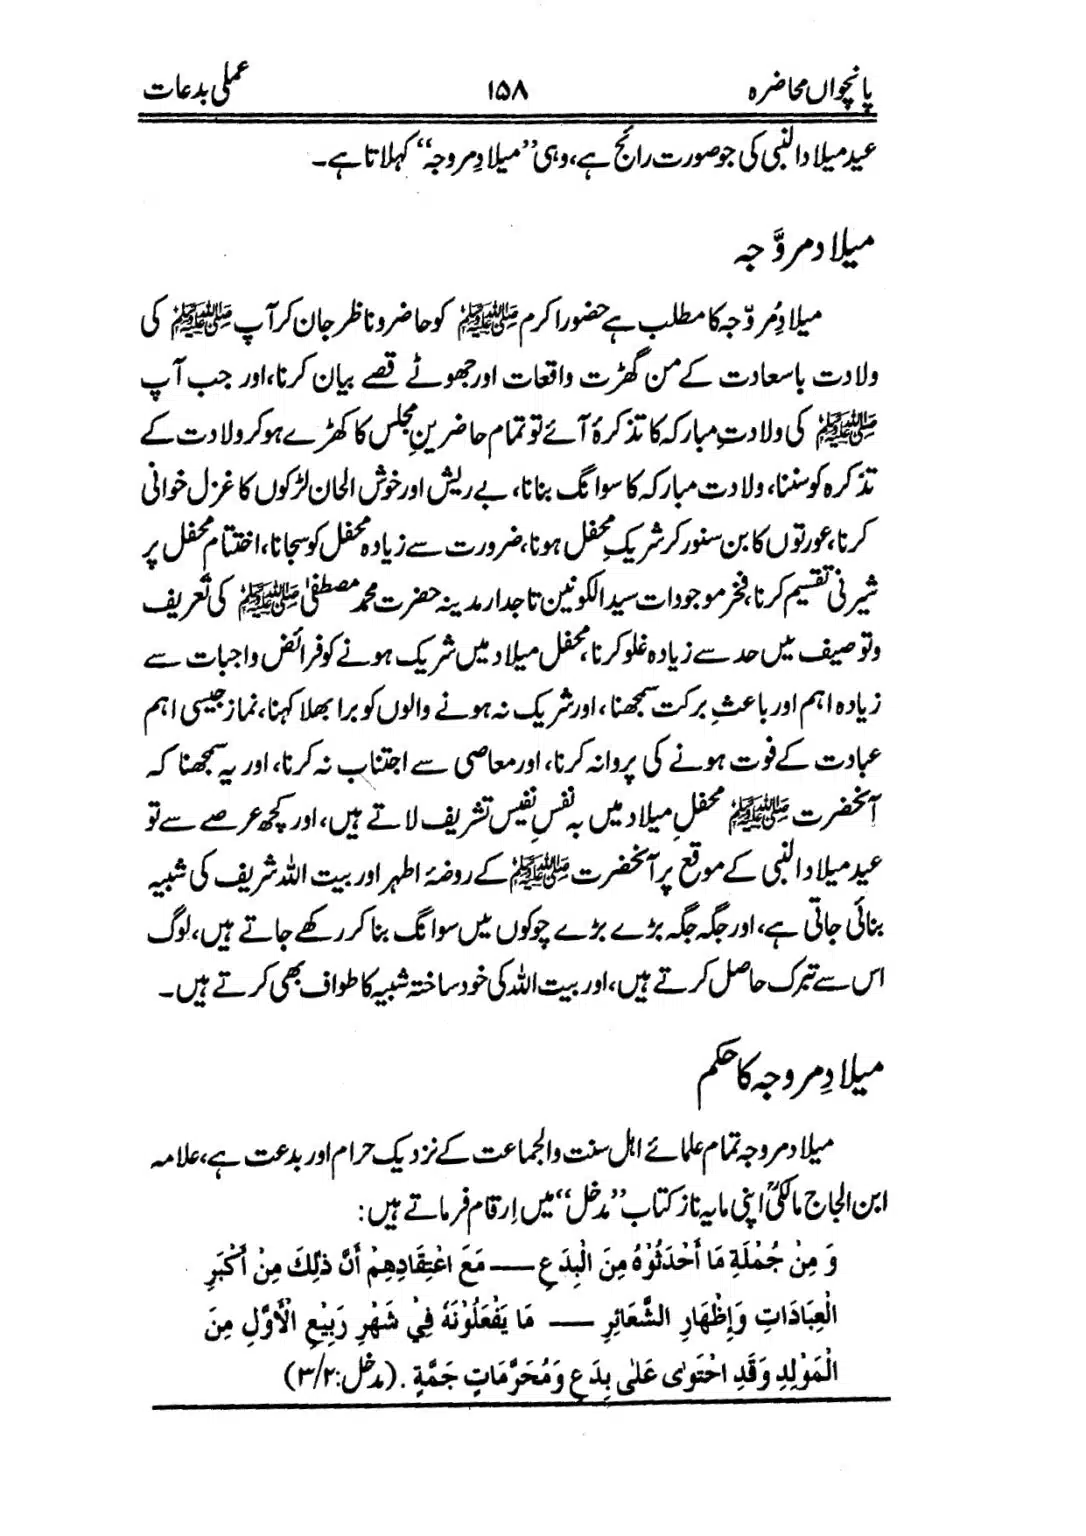 پانچواں محاضرہ ۱۵۸ عملی بدعات
عید میلاد النبی کی جو صورت رائج ہے، وہی ”میلادِ مروجہ“ کہلاتا ہے۔
میلاد مروَّجہ
میلادِ مُروّجہ کا مطلب ہے حضور اکرم ﷺ کو حاضر و ناظر جان کر آپ ﷺ کی
ولادت باسعادت کے من گھڑت واقعات اور جھوٹے قصے بیان کرنا، اور جب آپ
ﷺ کی ولادتِ مبارکہ کا تذکرۂ آئے تو تمام حاضرینِ مجلس کا کھڑے ہو کر ولادت کے
تذکرہ کو سننا، ولادت مبارکہ کا سوانگ بنانا، بے ریش اور خوش الحان لڑکوں کا غزل خوانی
کرنا، عورتوں کا بن سنور کر شریکِ محفل ہونا، ضرورت سے زیادہ محفل کو سجانا، اختتام محفل پر
شیرنی تقسیم کرنا، فخر موجودات سید الکونین تاجدار مدینہ حضرت محمد مصطفیٰ ﷺ کی تعریف
وتوصیف میں حد سے زیادہ غلو کرنا، محفل میلاد میں شریک ہونے کو فرائض واجبات سے
زیادہ اہم اور باعثِ برکت سمجھنا، اور شریک نہ ہونے والوں کو برا بھلا کہنا، نماز جیسی اہم
عبادت کے فوت ہونے کی پروا نہ کرنا، اور معاصی سے اجتناب نہ کرنا، اور یہ سمجھنا کہ
آنحضرت ﷺ محفلِ میلاد میں بہ نفسِ نفیس تشریف لاتے ہیں، اور کچھ عرصے سے تو
عید میلاد النبی کے موقع پر آنحضرت ﷺ کے روضۂ اطہر اور بیت اللہ شریف کی شبیہ
بنائی جاتی ہے، اور جگہ جگہ بڑے بڑے چوکوں میں سوانگ بنا کر رکھے جاتے ہیں، لوگ
اس سے تبرک حاصل کرتے ہیں، اور بیت اللہ کی خود ساختہ شبیہ کا طواف بھی کرتے ہیں۔
میلادِ مروجہ کا حکم
میلاد مروجہ تمام علمائے اہل سنت والجماعت کے نزدیک حرام اور بدعت ہے، علامہ
ابن الحاج مالکیؒ اپنی مایہ ناز کتاب ”مدخل“ میں اِرقام فرماتے ہیں:
وَ مِنْ جُمْلَةِ مَا أَحْدَثُوْهُ مِنَ الْبِدَعِ — مَعَ اعْتِقَادِهِمْ أَنَّ ذٰلِكَ مِنْ أَكْبَرِ
الْعِبَادَاتِ وَإِظْهَارِ الشَّعَائِرِ — مَا يَفْعَلُوْنَهٗ فِيْ شَهْرِ رَبِيْعِ الْأَوَّلِ مِنَ
الْمَوْلِدِ وَقَدِ احْتَوٰى عَلٰى بِدَعٍ وَمُحَرَّمَاتٍ جَمَّةٍ. (مدخل: ۳/۲)